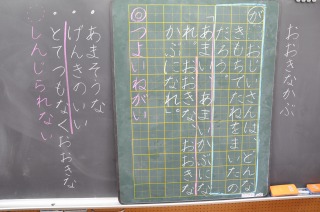 おおきなかぶ
が おじいさんは、どんな
きもちでたねをまいたの
だろう。
「あまい あまいかぶにな
れ。おおきな おおきな
かぶになれ。」
◎つよいねがい
・あまそうな
・げんきのいい
・とてつもなくおおきな
しんじられない